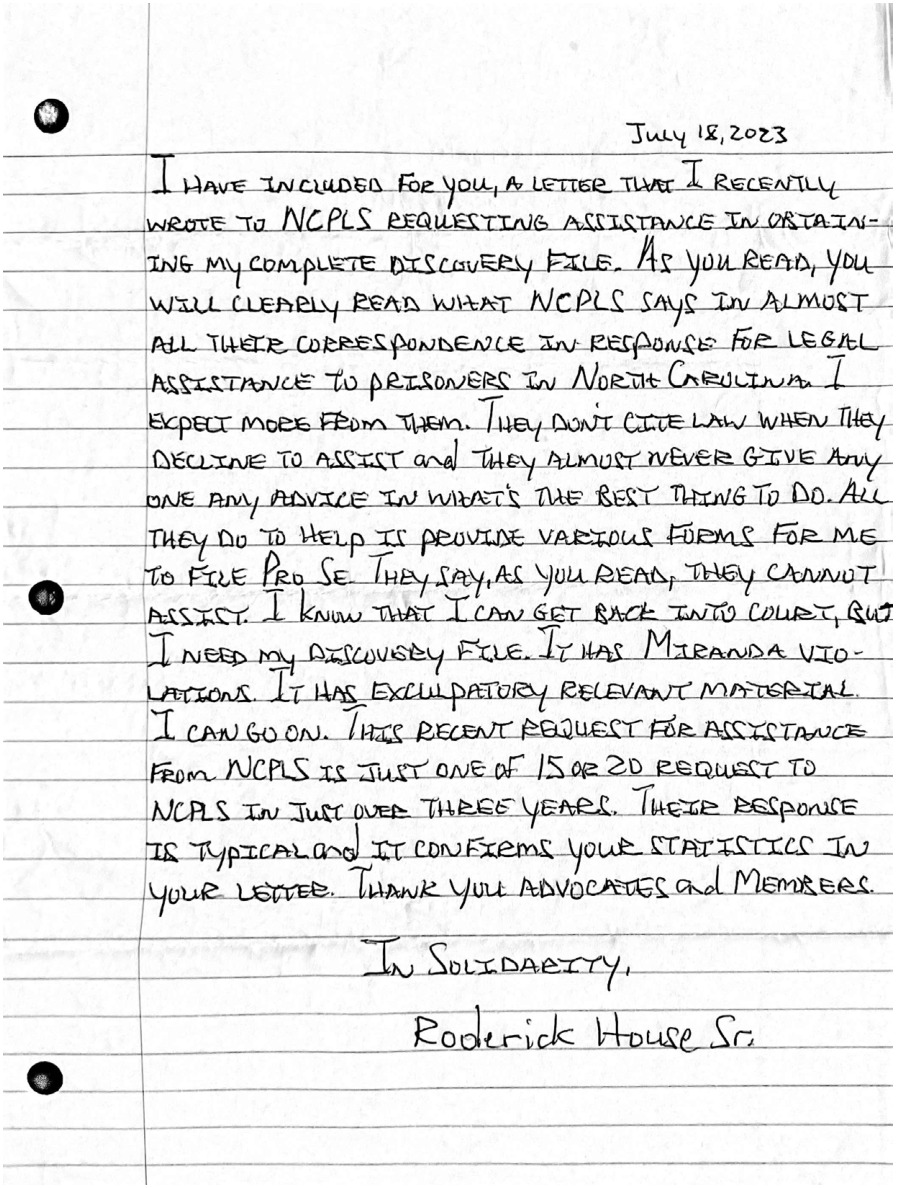 July 18, 2023
I HAVE INCLUDED FOR YOU, A LETTER THAT I RECENTLY
WROTE TO NCPLS REQUESTING ASSISTANCE IN OBTAIN-
ING MY COMPLETE DISCOVERY FILE. AS YOU READ, YOU
WILL CLEARLY READ WHAT NCPLS SAYS IN ALMOST
ALL THEIR CORRESPONDENCE IN RESPONSE FOR LEGAL
ASSISTANCE TO PRISONERS IN NORTH CAROLINA. I
EXPECT MORE FROM THEM. THEY DON'T CITE LAW WHEN THEY
DECLINE TO ASSIST and THEY ALMOST NEVER GIVE ANY
ONE ANY ADVICE IN WHAT'S THE BEST THING TO DO. ALL
THEY DO TO HELP IS PROVIDE VARIOUS FORMS FOR ME
TO FILE PRO SE. THEY SAY, AS YOU READ, THEY CANNOT
ASSIST. I KNOW THAT I CAN GET BACK INTO COURT, BUT
I NEED MY DISCOVERY FILE. IT HAS MIRANDA VIO-
LATIONS. IT HAS EXCULPATORY RELEVANT MATERIAL.
I CAN GO ON. THIS RECENT REQUEST FOR ASSISTANCE
FROM NCPLS IS JUST ONE OF 15 OR 20 REQUEST TO
NCPLS IN JUST OVER THREE YEARS. THEIR RESPONSE
IS TYPICAL and IT CONFIRMS YOUR STATISTICS IN
YOUR LETTER. THANK YOU ADVOCATES and MEMBERS.
IN SOLIDARITY,
Roderick House Sr.